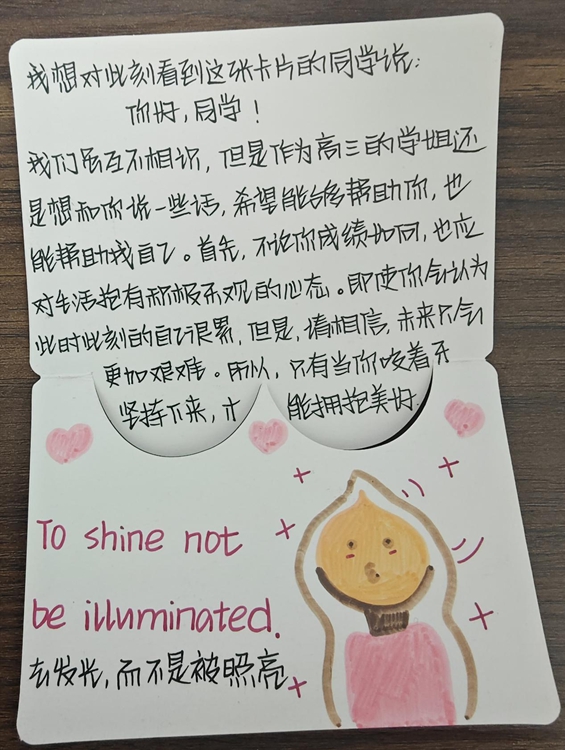 我想对此刻看到这张卡片的同学说：
你好，同学！
我们虽互不相识，但是作为高三的学姐还
是想和你说一些话，希望能够帮助你，也
能帮助我自己。首先，不论你成绩如何，也应
对生活抱有积极乐观的心态。即使你会认为
此时此刻的自己很累，但是，请相信，未来只会
更加艰难。所以，只有当你咬着牙
坚持下来，才能拥抱美好.
To shine not
be illuminated.
去发光，而不是被照亮